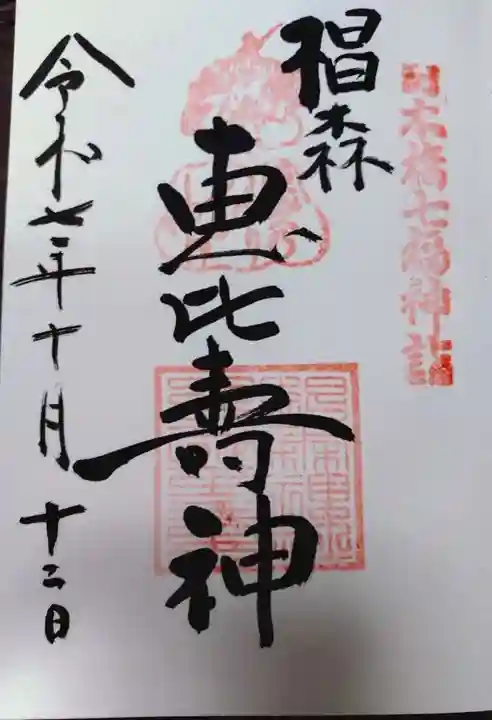 日本橋七福神詣
椙森
恵比寿神
令和七年十月十二日